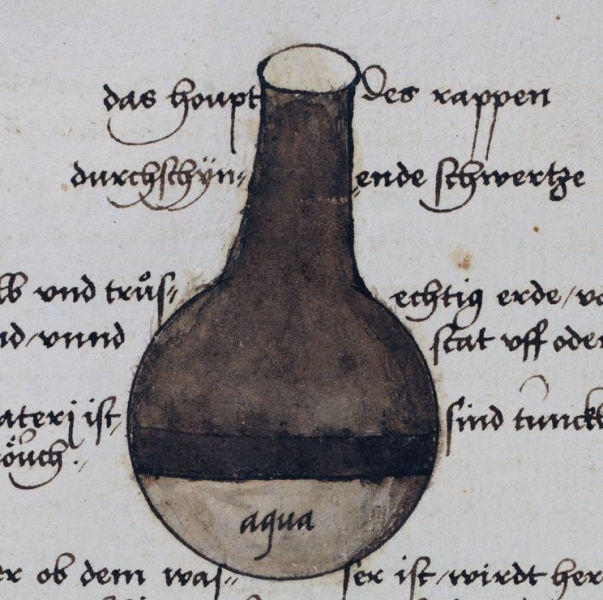 das houpt des rappen
durchschÿn= ende schwertze
vnd trůs= echtig erde / 
vnnd stat vff oder
aterj ist sind tunck
öuch
aqua
er ob dem was= ser ist / wirdt her